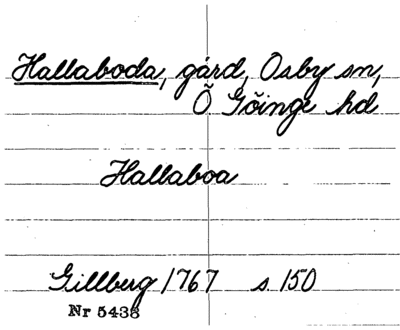 Hallaboda, gård, Osby sn,
Ö Göinge hd
Hallaboa
Gillberg 1767 s 150
Nr 5438